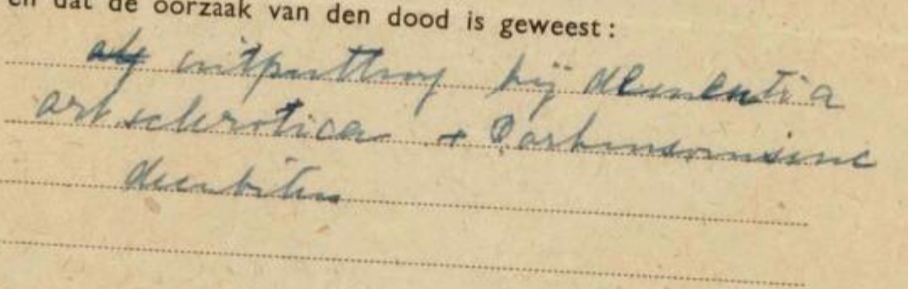 en dat de oorzaak van den dood is geweest:
alg uitputting bij dementia
art sclerotica + Parkinsonisme
decubitus